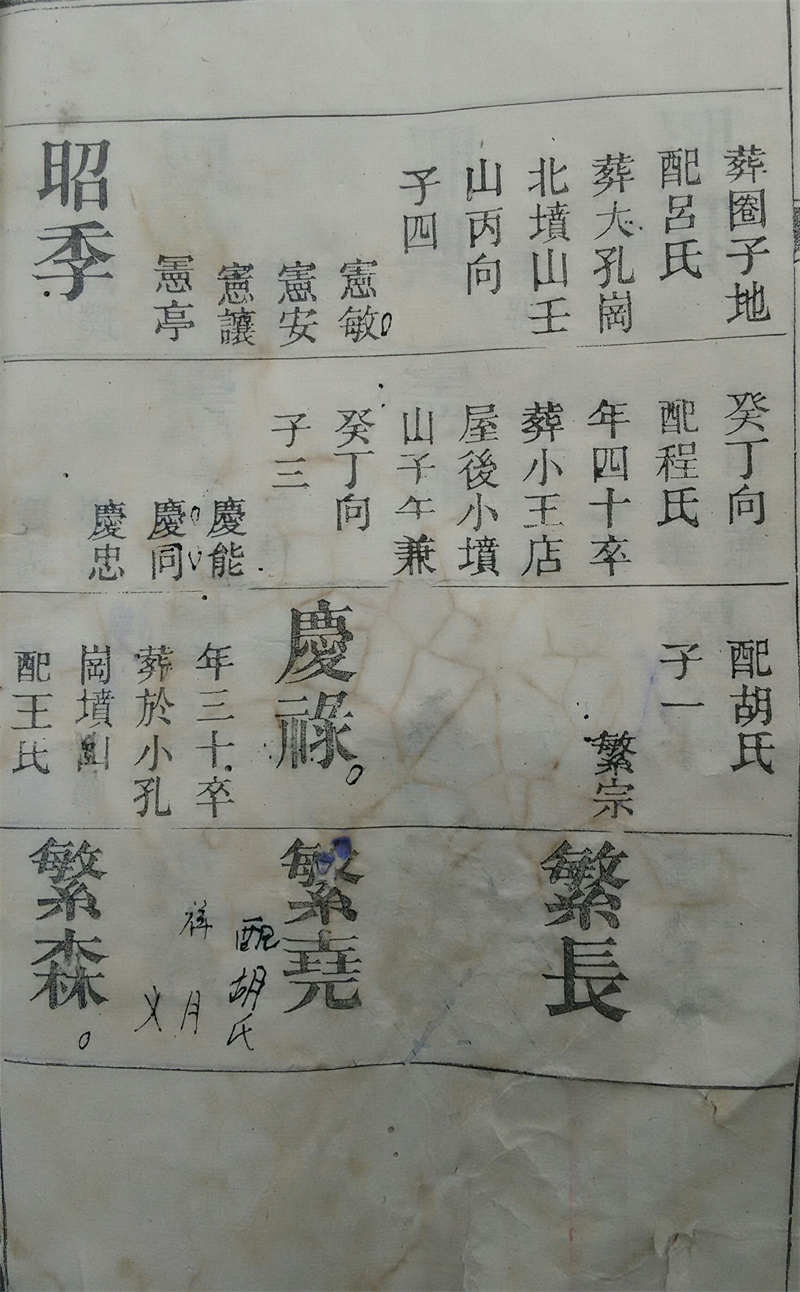 葬圈子地
配呂氏
葬大孔崗
北墳山壬
山丙向
子四
憲敏
憲安
憲讓
憲亭
昭季
癸丁向
配程氏
年四十卒
葬小王店
屋後小墳
山子午兼
癸丁向
子三
慶能
慶同
慶忠
配胡氏
子一
繁宗
慶祿
年三十卒
葬於小孔
崗墳山
配王氏
繁長
繁堯
配胡氏
祥月
义
繁森